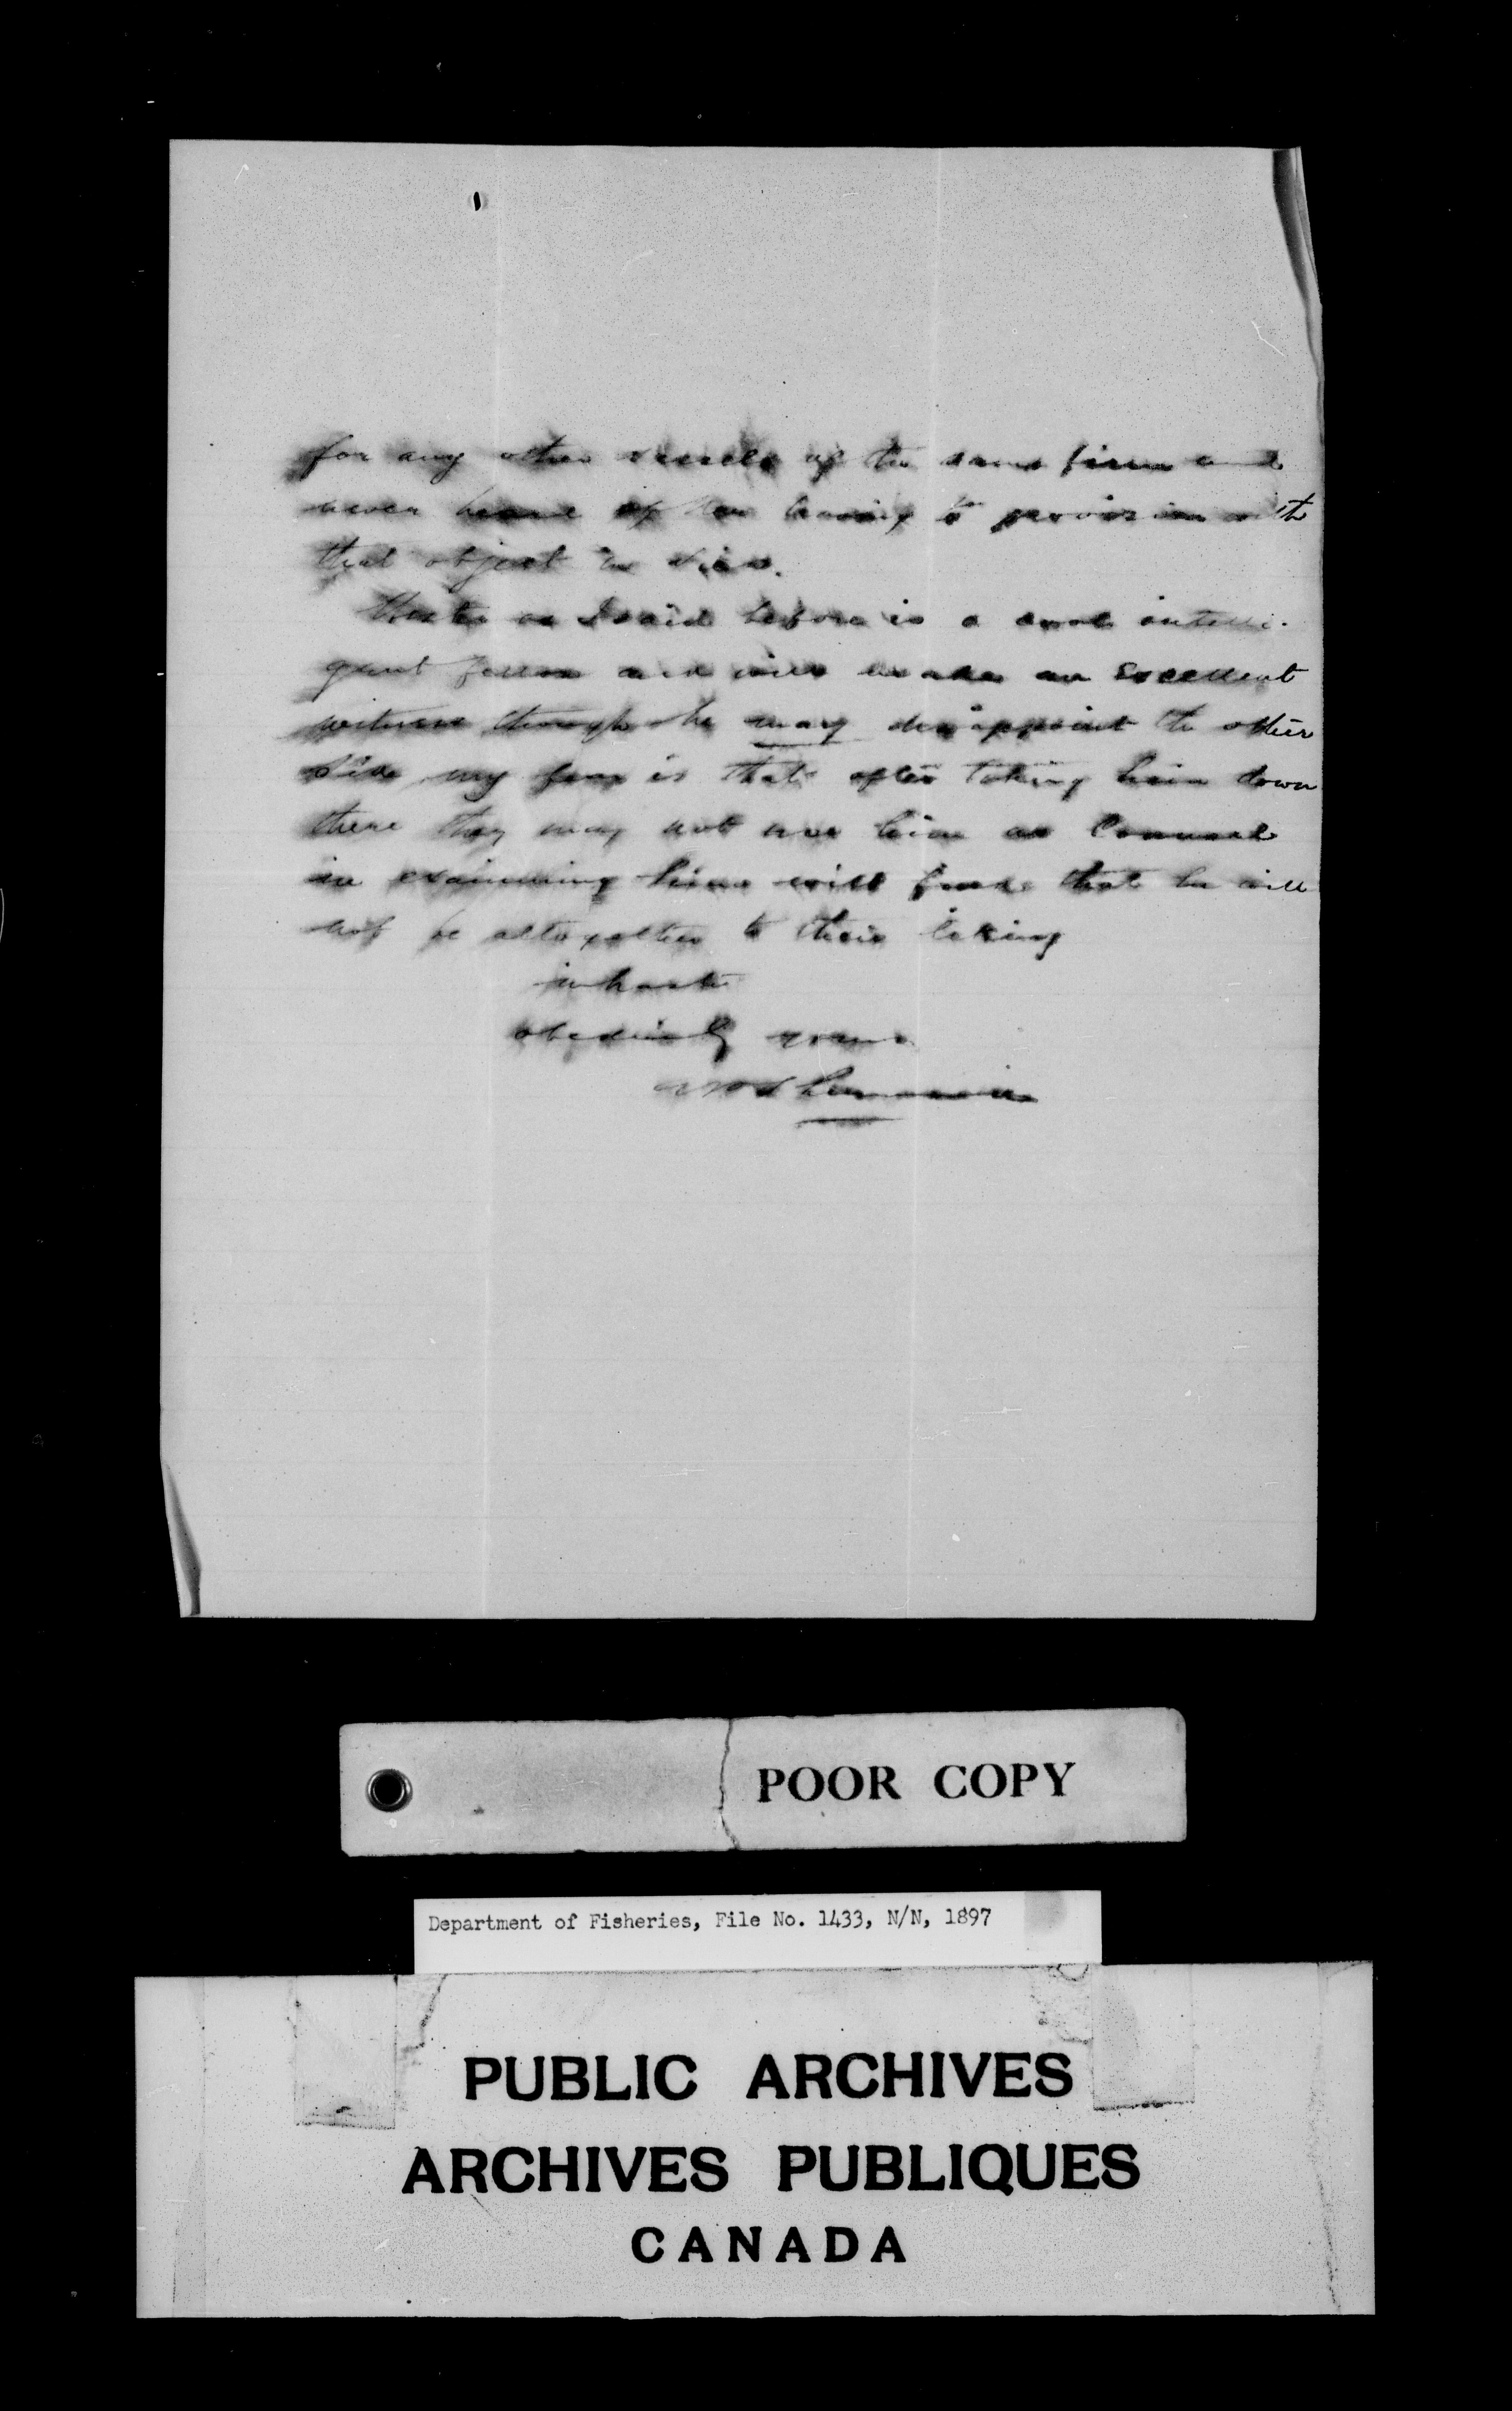 for any other vessels of the same firm and
never heard of her having to provision with
that object in view.
as I said before is a cool intelli-
gent fellow and will make an excellent
witness though he may disappoint the other
side my fear is that after taking him down
there they may not use him as Counsel
in examining him will find that he will
not be altogether to their liking
in haste
obediently yours
POOR COPY
Department of Fisheries, File No. 1433, N/N, 1897
PUBLIC ARCHIVES
ARCHIVES PUBLIQUES
CANADA